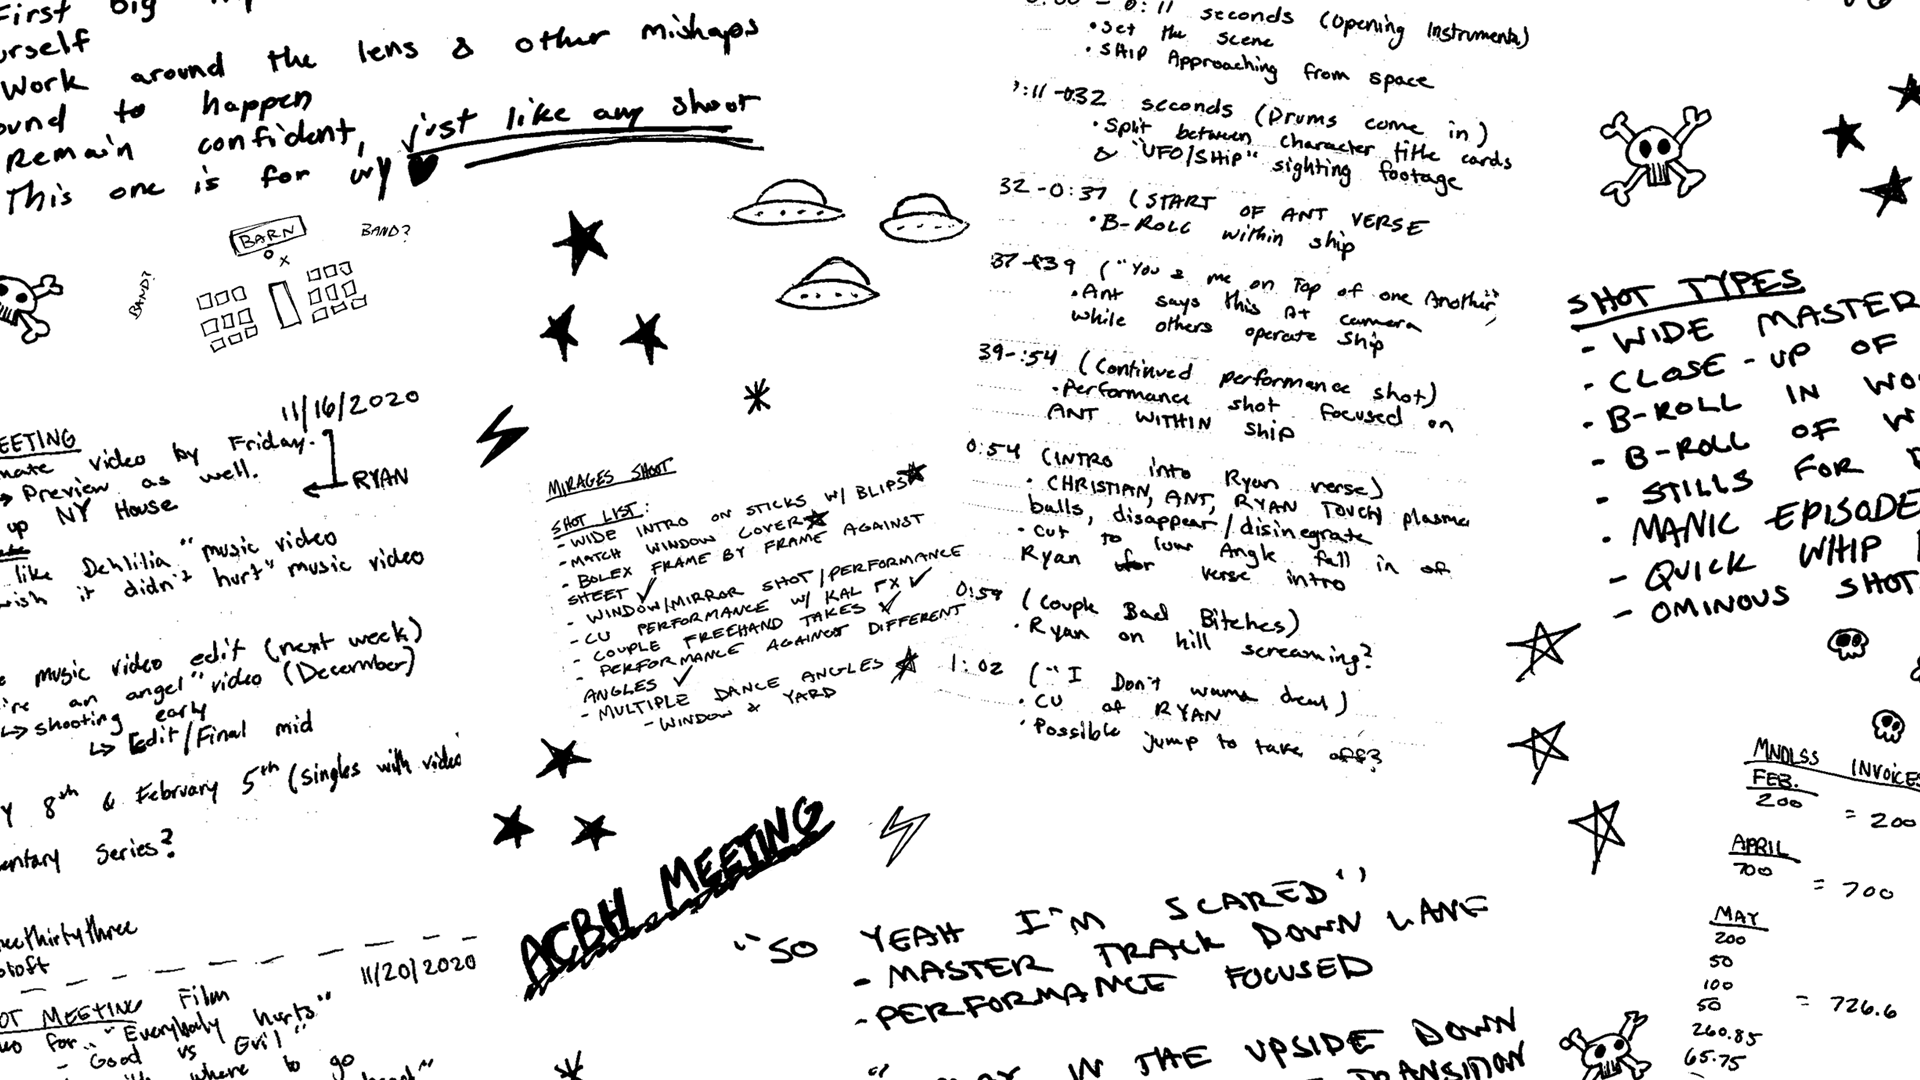 First big
urself
Work around the lens & other mishaps
ound to happen
Remain confident, just like any shoot
This one is for wy
BARN
BAND?
BAND?
11/16/2020
EETING
mate video by Friday.
→ Preview as well.
RYAN
up NY House
like Dehlilia" music video
wish it didn't hurt" music video
music video edit (next week)
an angel" video (December)
↳ shooting early
↳ Edit/Final mid
Y 8th & February 5th (singles with video
entary series?
neethirtythree
11/20/2020
OT MEETING
Film
for "Everybody hurts"
- Good vs Evil"
where to go
MIRAGES SHOOT
SHOT LIST:
- WIDE INTRO ON STICKS W/ BLIPS
- MATCH WINDOW COVER
- BOLEX FRAME BY FRAME AGAINST
SHEET ✓
- WINDOW/MIRROR SHOT/PERFORMANCE
- CU PERFORMANCE W/ KAL FX ✓
- COUPLE FREEHAND TAKES ✓
- PERFORMANCE AGAINST DIFFERENT
ANGLES ✓
- MULTIPLE DANCE ANGLES
- WINDOW & YARD
ACBH MEETING
0:00 - 0:11 seconds (Opening Instrumental)
• Set the scene
• SHIP Approaching from space
:11-032 seconds (Drums come in)
• Split between character title cards
& "UFO/SHIP" sighting footage
32-0:37 (START OF ANT VERSE
• B-ROLL within ship
37-:39 ("You & me on Top of one Another"
• Ant says this At camera
while others operate ship
39-:54 (Continued performance shot)
• Performance shot focused on
ANT WITHIN ship
0:54 (INTRO into Ryan verse)
• CHRISTIAN, ANT, RYAN TOUCH plasma
balls, disappear/disinegrate
• Cut to low Angle fall in of
Ryan for verse intro
0:59 (Couple Bad Bitches)
• Ryan on hill screaming?
1:02 ("I Don't wanna deal)
• CU of RYAN
• Possible jump to take off?
SHOT TYPES
- WIDE MASTER
- CLOSE-UP OF
- B-ROLL IN WO
- B-ROLL OF W
- STILLS FOR
- MANIC EPISODE
- QUICK WHIP
- OMINOUS SHOT
"SO YEAH I'M SCARED"
- MASTER TRACK DOWN LANE
- PERFORMANCE FOCUSED
IN THE UPSIDE DOWN
TRANSITION
MNDLSS INVOICES
FEB.
200 = 200
APRIL
700 = 700
MAY
200
50
100
50 = 726.6
260.85
65.75